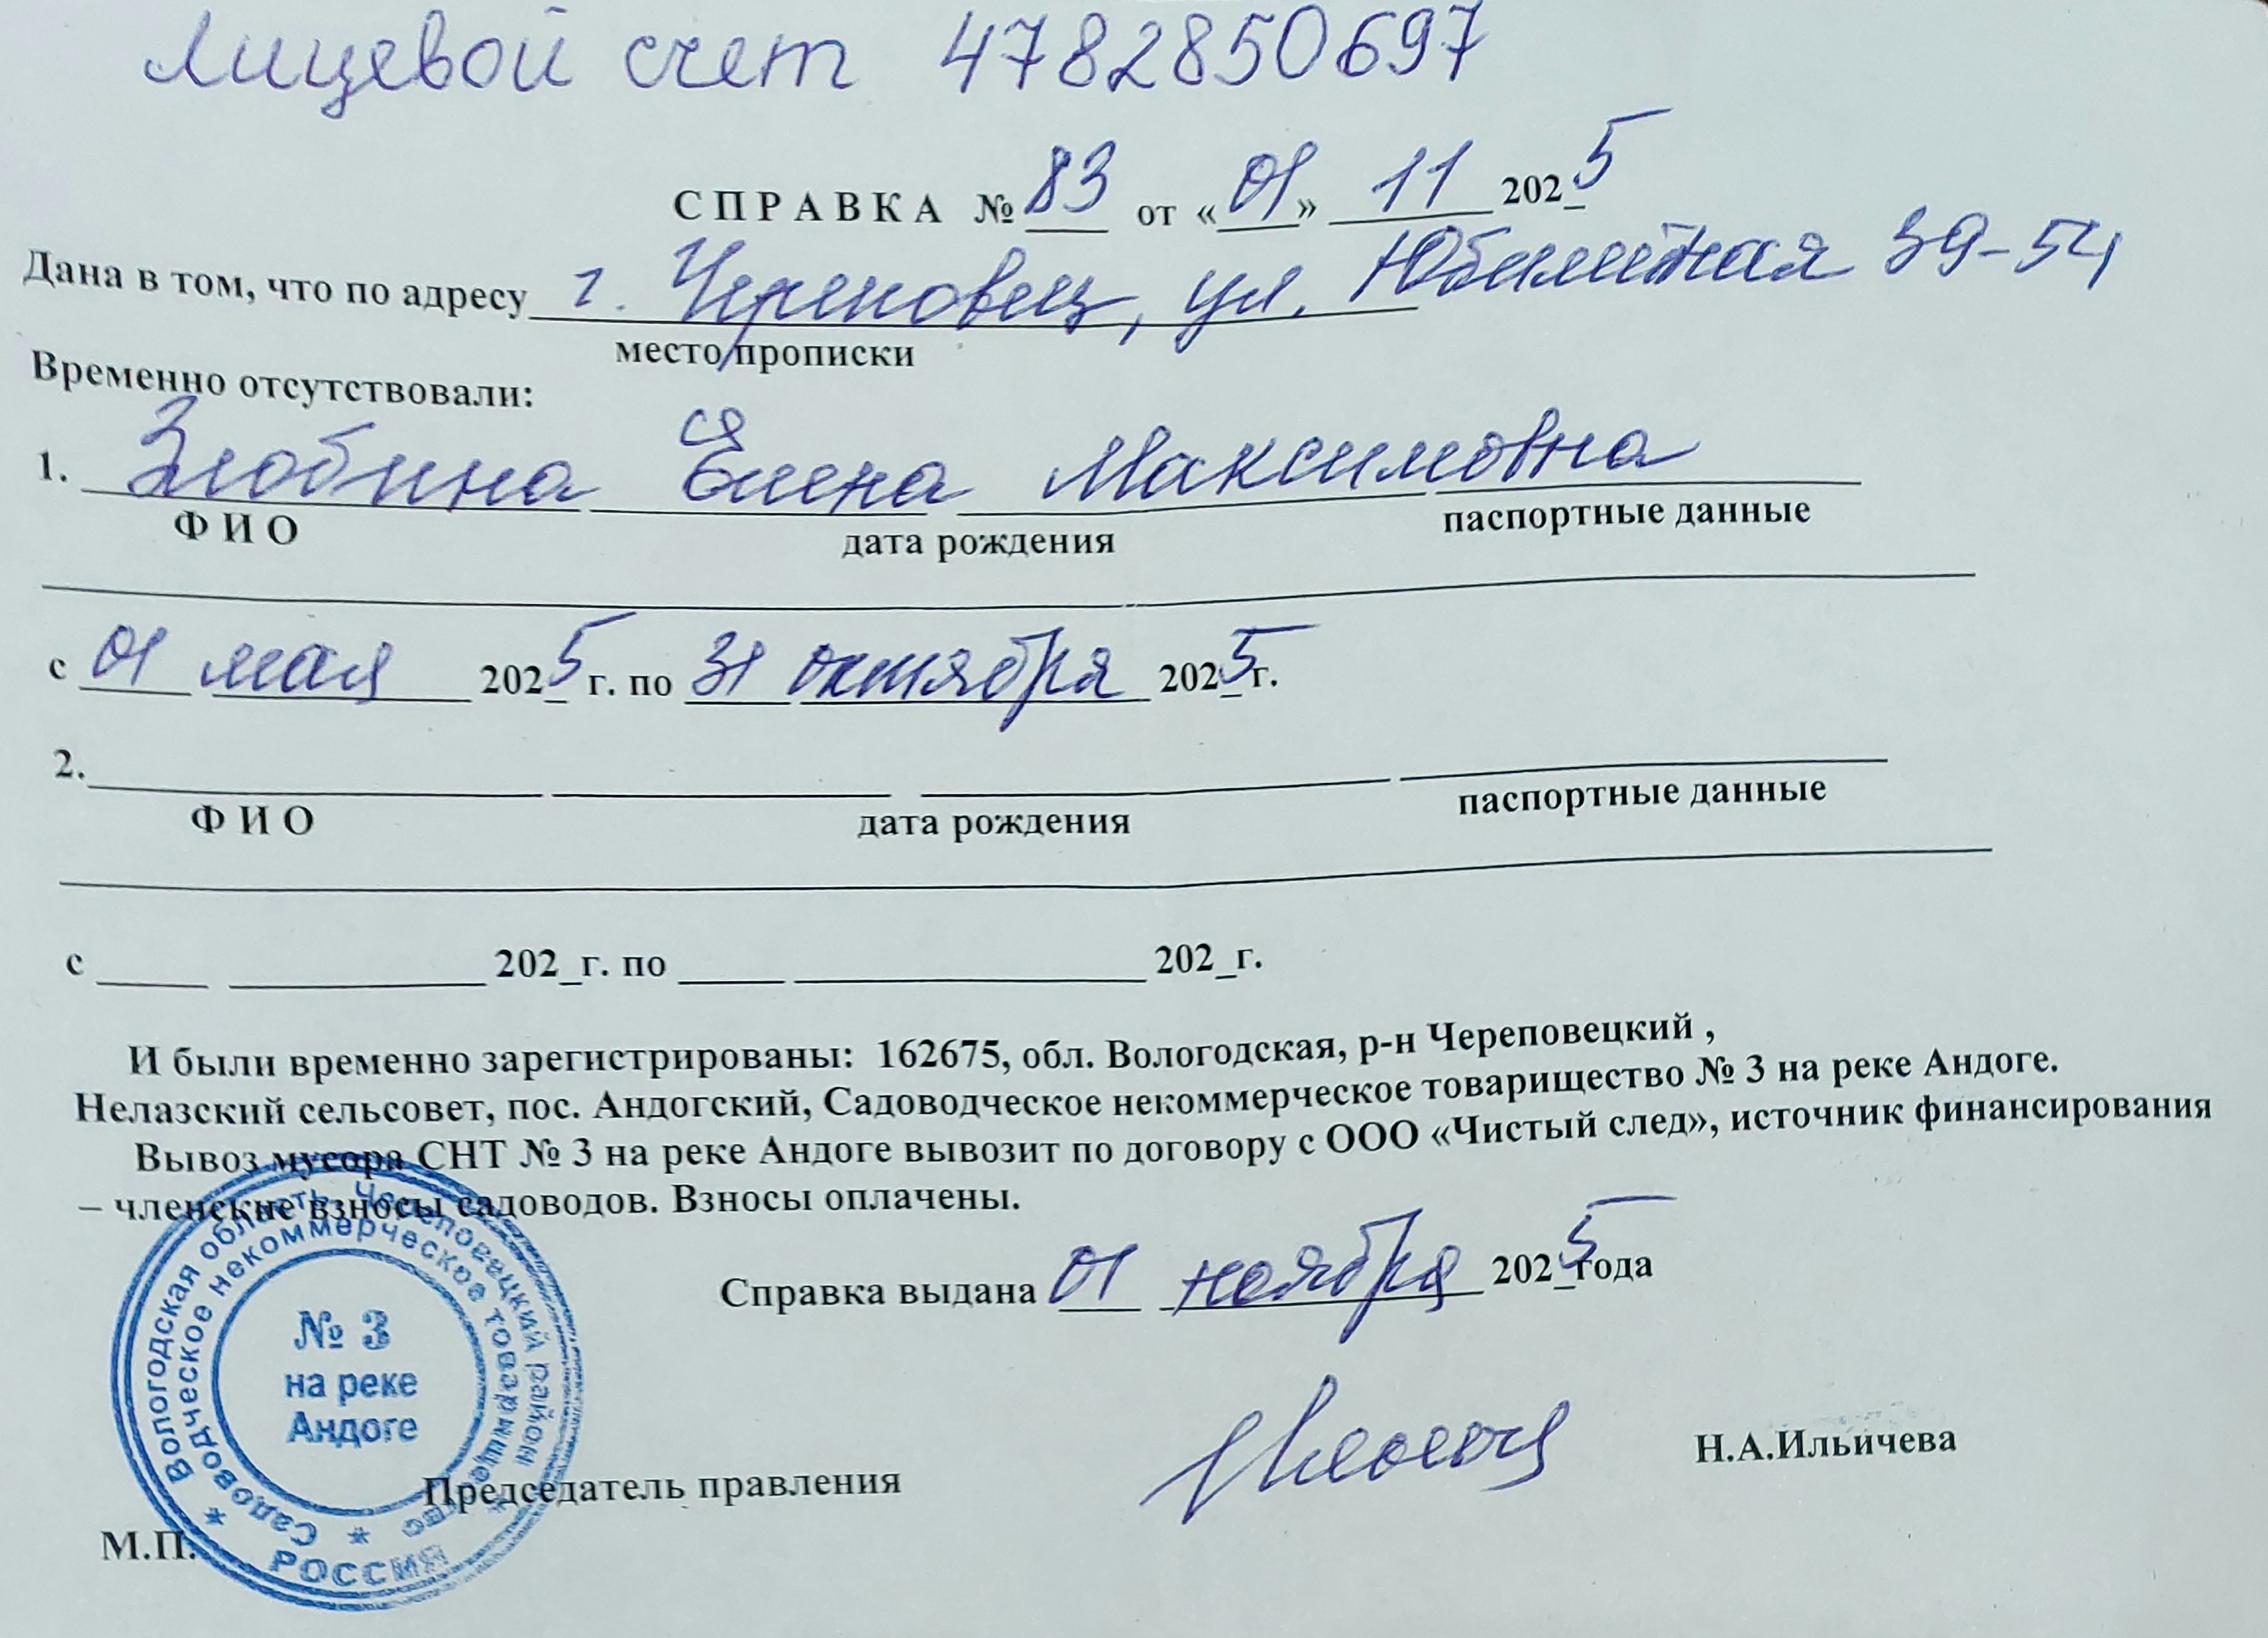 Лицевой счет 4782850697
СПРАВКА № 83 от «01» 11 2025
Дана в том, что по адресу г. Череповец, ул. Юбилейная 39-54
место прописки
Временно отсутствовали:
1. Злобина Елена Максимовна
Ф И О дата рождения паспортные данные
с 01 мая 2025 г. по 31 октября 2025 г.
2.
Ф И О дата рождения паспортные данные
с 202_г. по 202_г.
И были временно зарегистрированы: 162675, обл. Вологодская, р-н Череповецкий ,
Нелазский сельсовет, пос. Андогский, Садоводческое некоммерческое товарищество № 3 на реке Андоге.
Вывоз мусора СНТ № 3 на реке Андоге вывозит по договору с ООО «Чистый след», источник финансирования
– членские взносы садоводов. Взносы оплачены.
Справка выдана 01 ноября 2025 года
Вологодская область Череповецкий район
Садоводческое некоммерческое товарищество
№ 3
на реке
Андоге
РОССИЯ
Председатель правления Н.А.Ильичева
М.П.